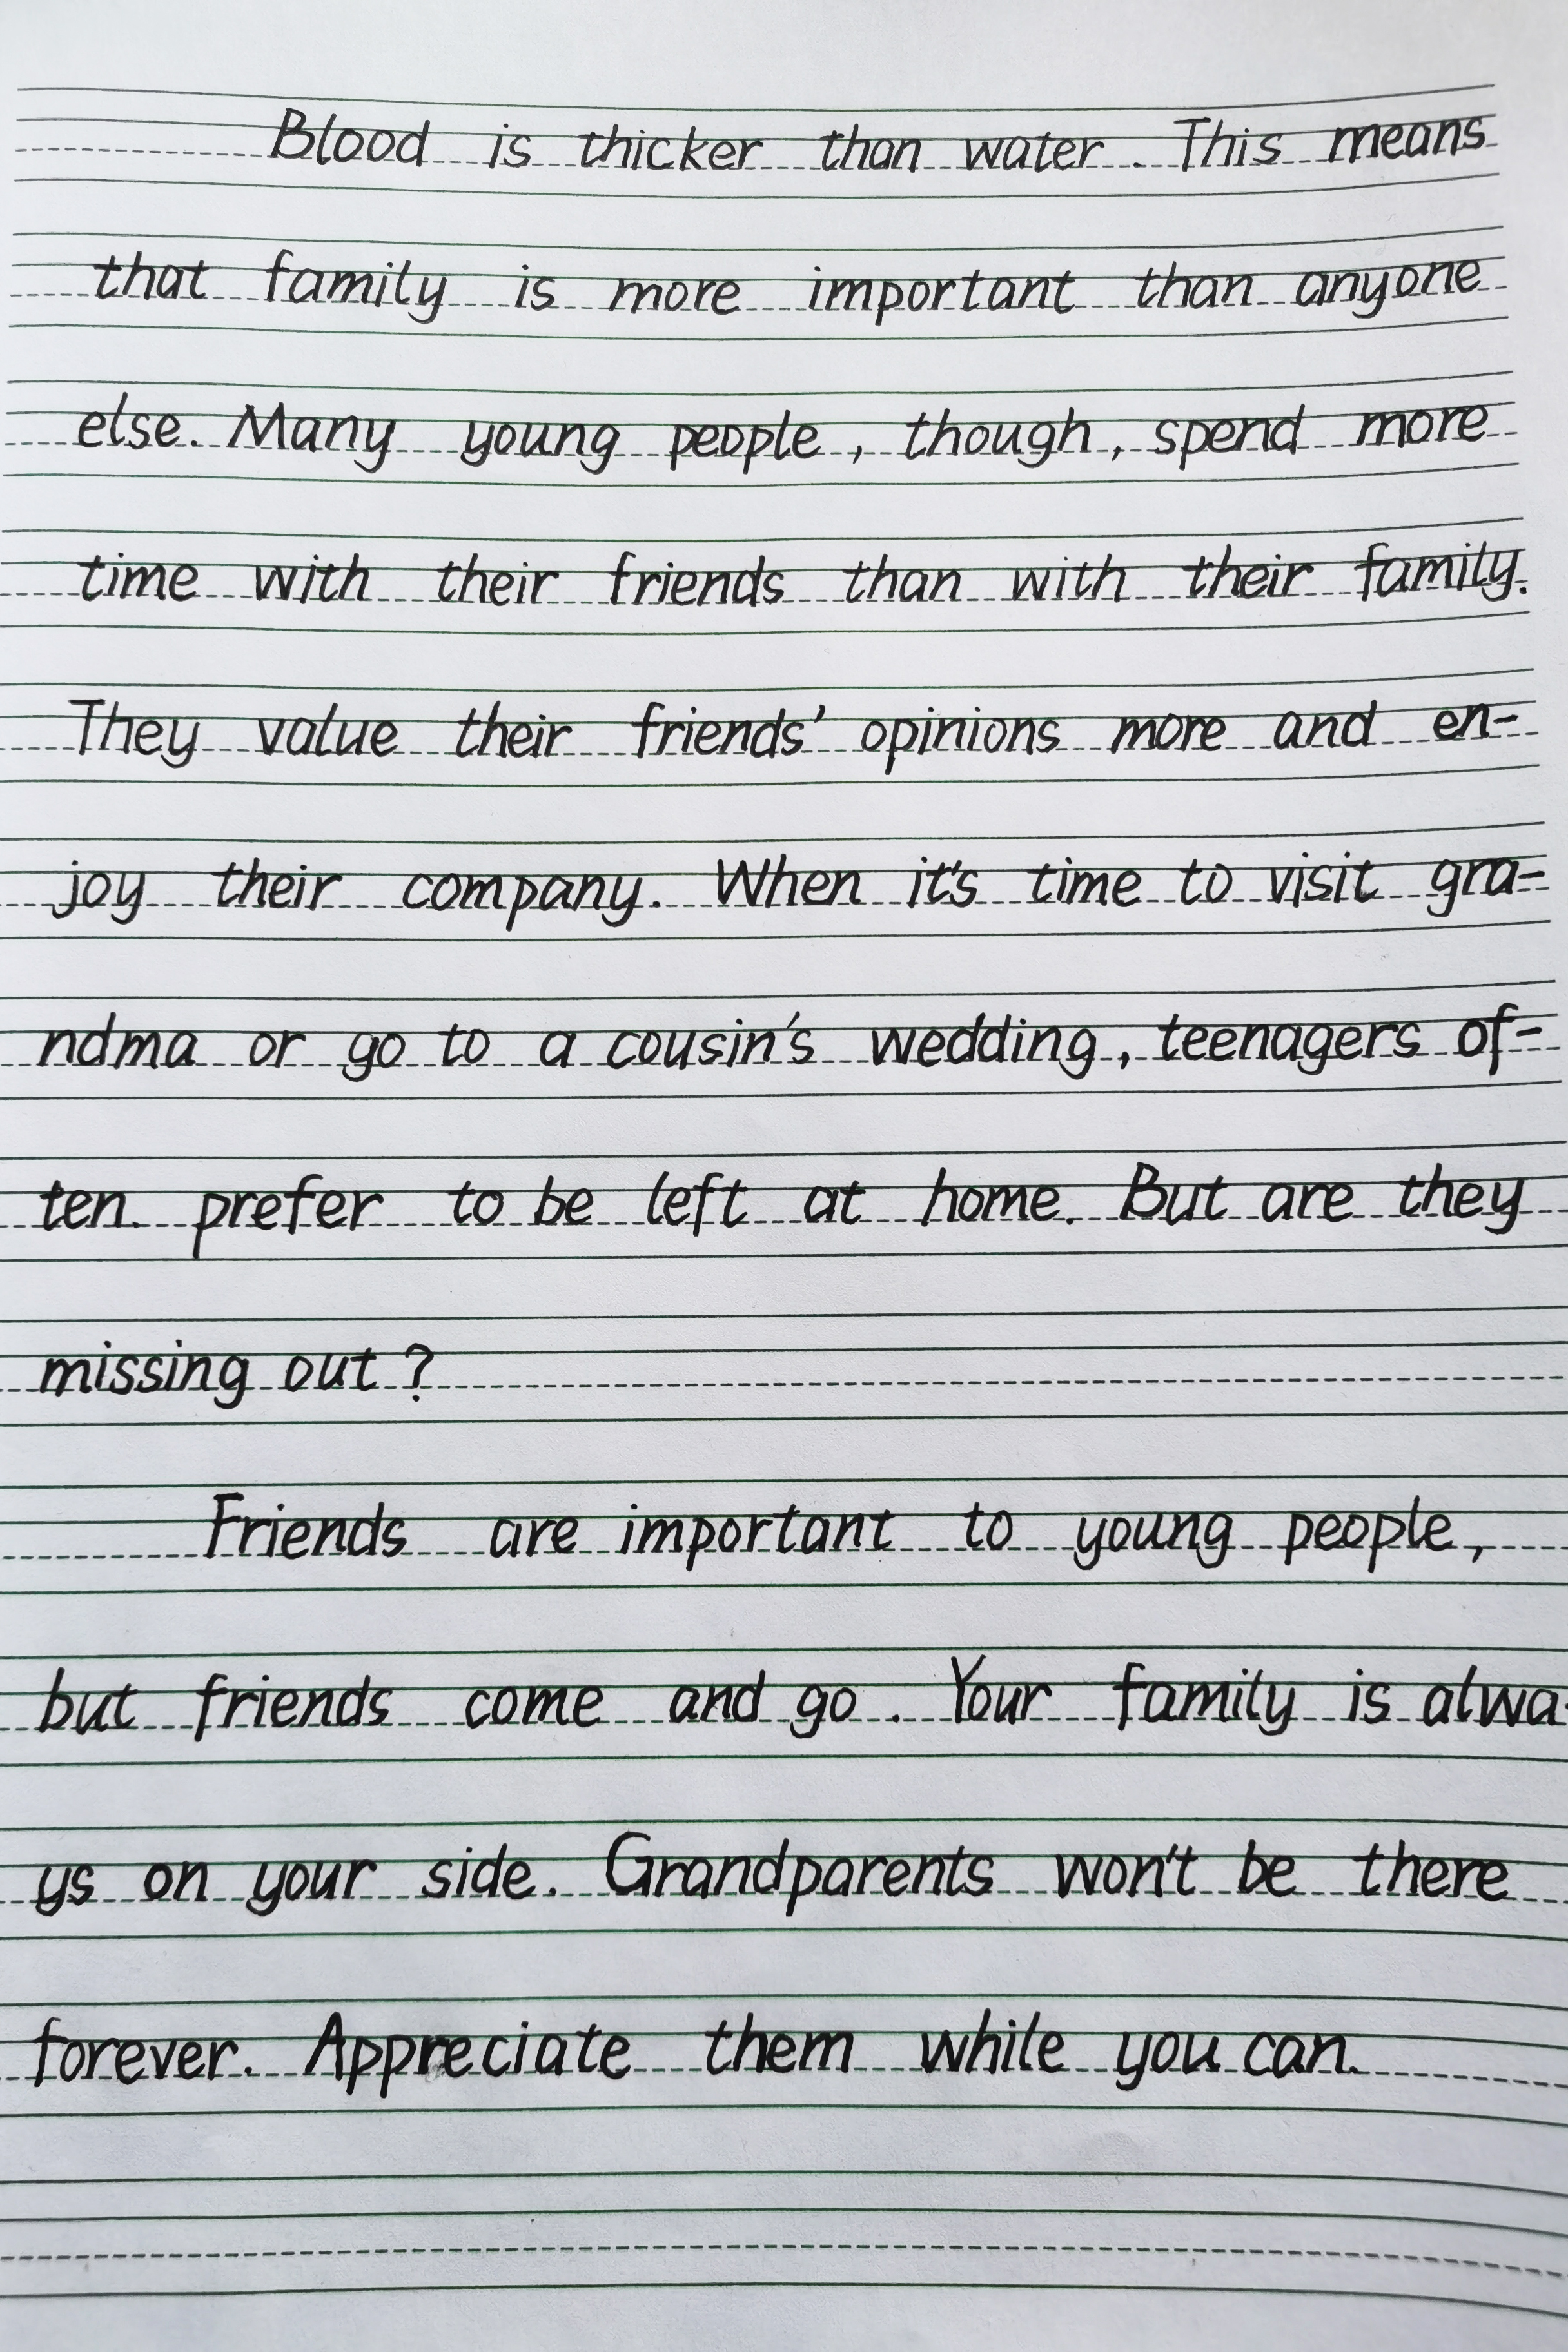 Blood is thicker than water. This means
that family is more important than anyone
else. Many young people, though, spend more
time with their friends than with their family.
They value their friends' opinions more and en-
joy their company. When it's time to visit gra-
ndma or go to a cousin's wedding, teenagers of-
ten prefer to be left at home. But are they
missing out?
Friends are important to young people,
but friends come and go. Your family is alwa-
ys on your side. Grandparents won't be there
forever. Appreciate them while you can.